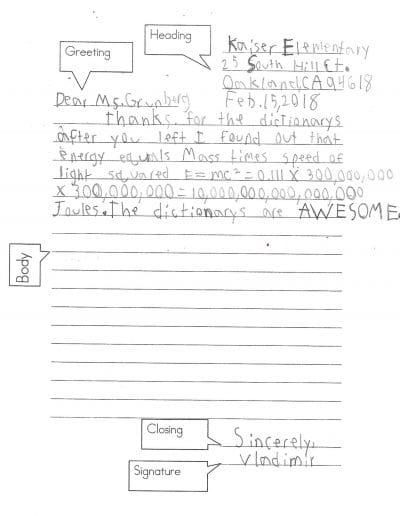 Heading
Kaiser Elementary
25 South Hill Ct.
Oakland, CA 94618
Feb. 15, 2018
Greeting
Dear Ms. Grunberg
Thanks for the dictionarys
after you left I found out that
energy equals Mass times speed of
light squared E=mc²=0.111 X 300,000,000
X 300,000,000=10,000,000,000,000,000
Joules. The dictionarys are AWESOME.
Body
Closing
Sincerely,
Signature
Vladimir